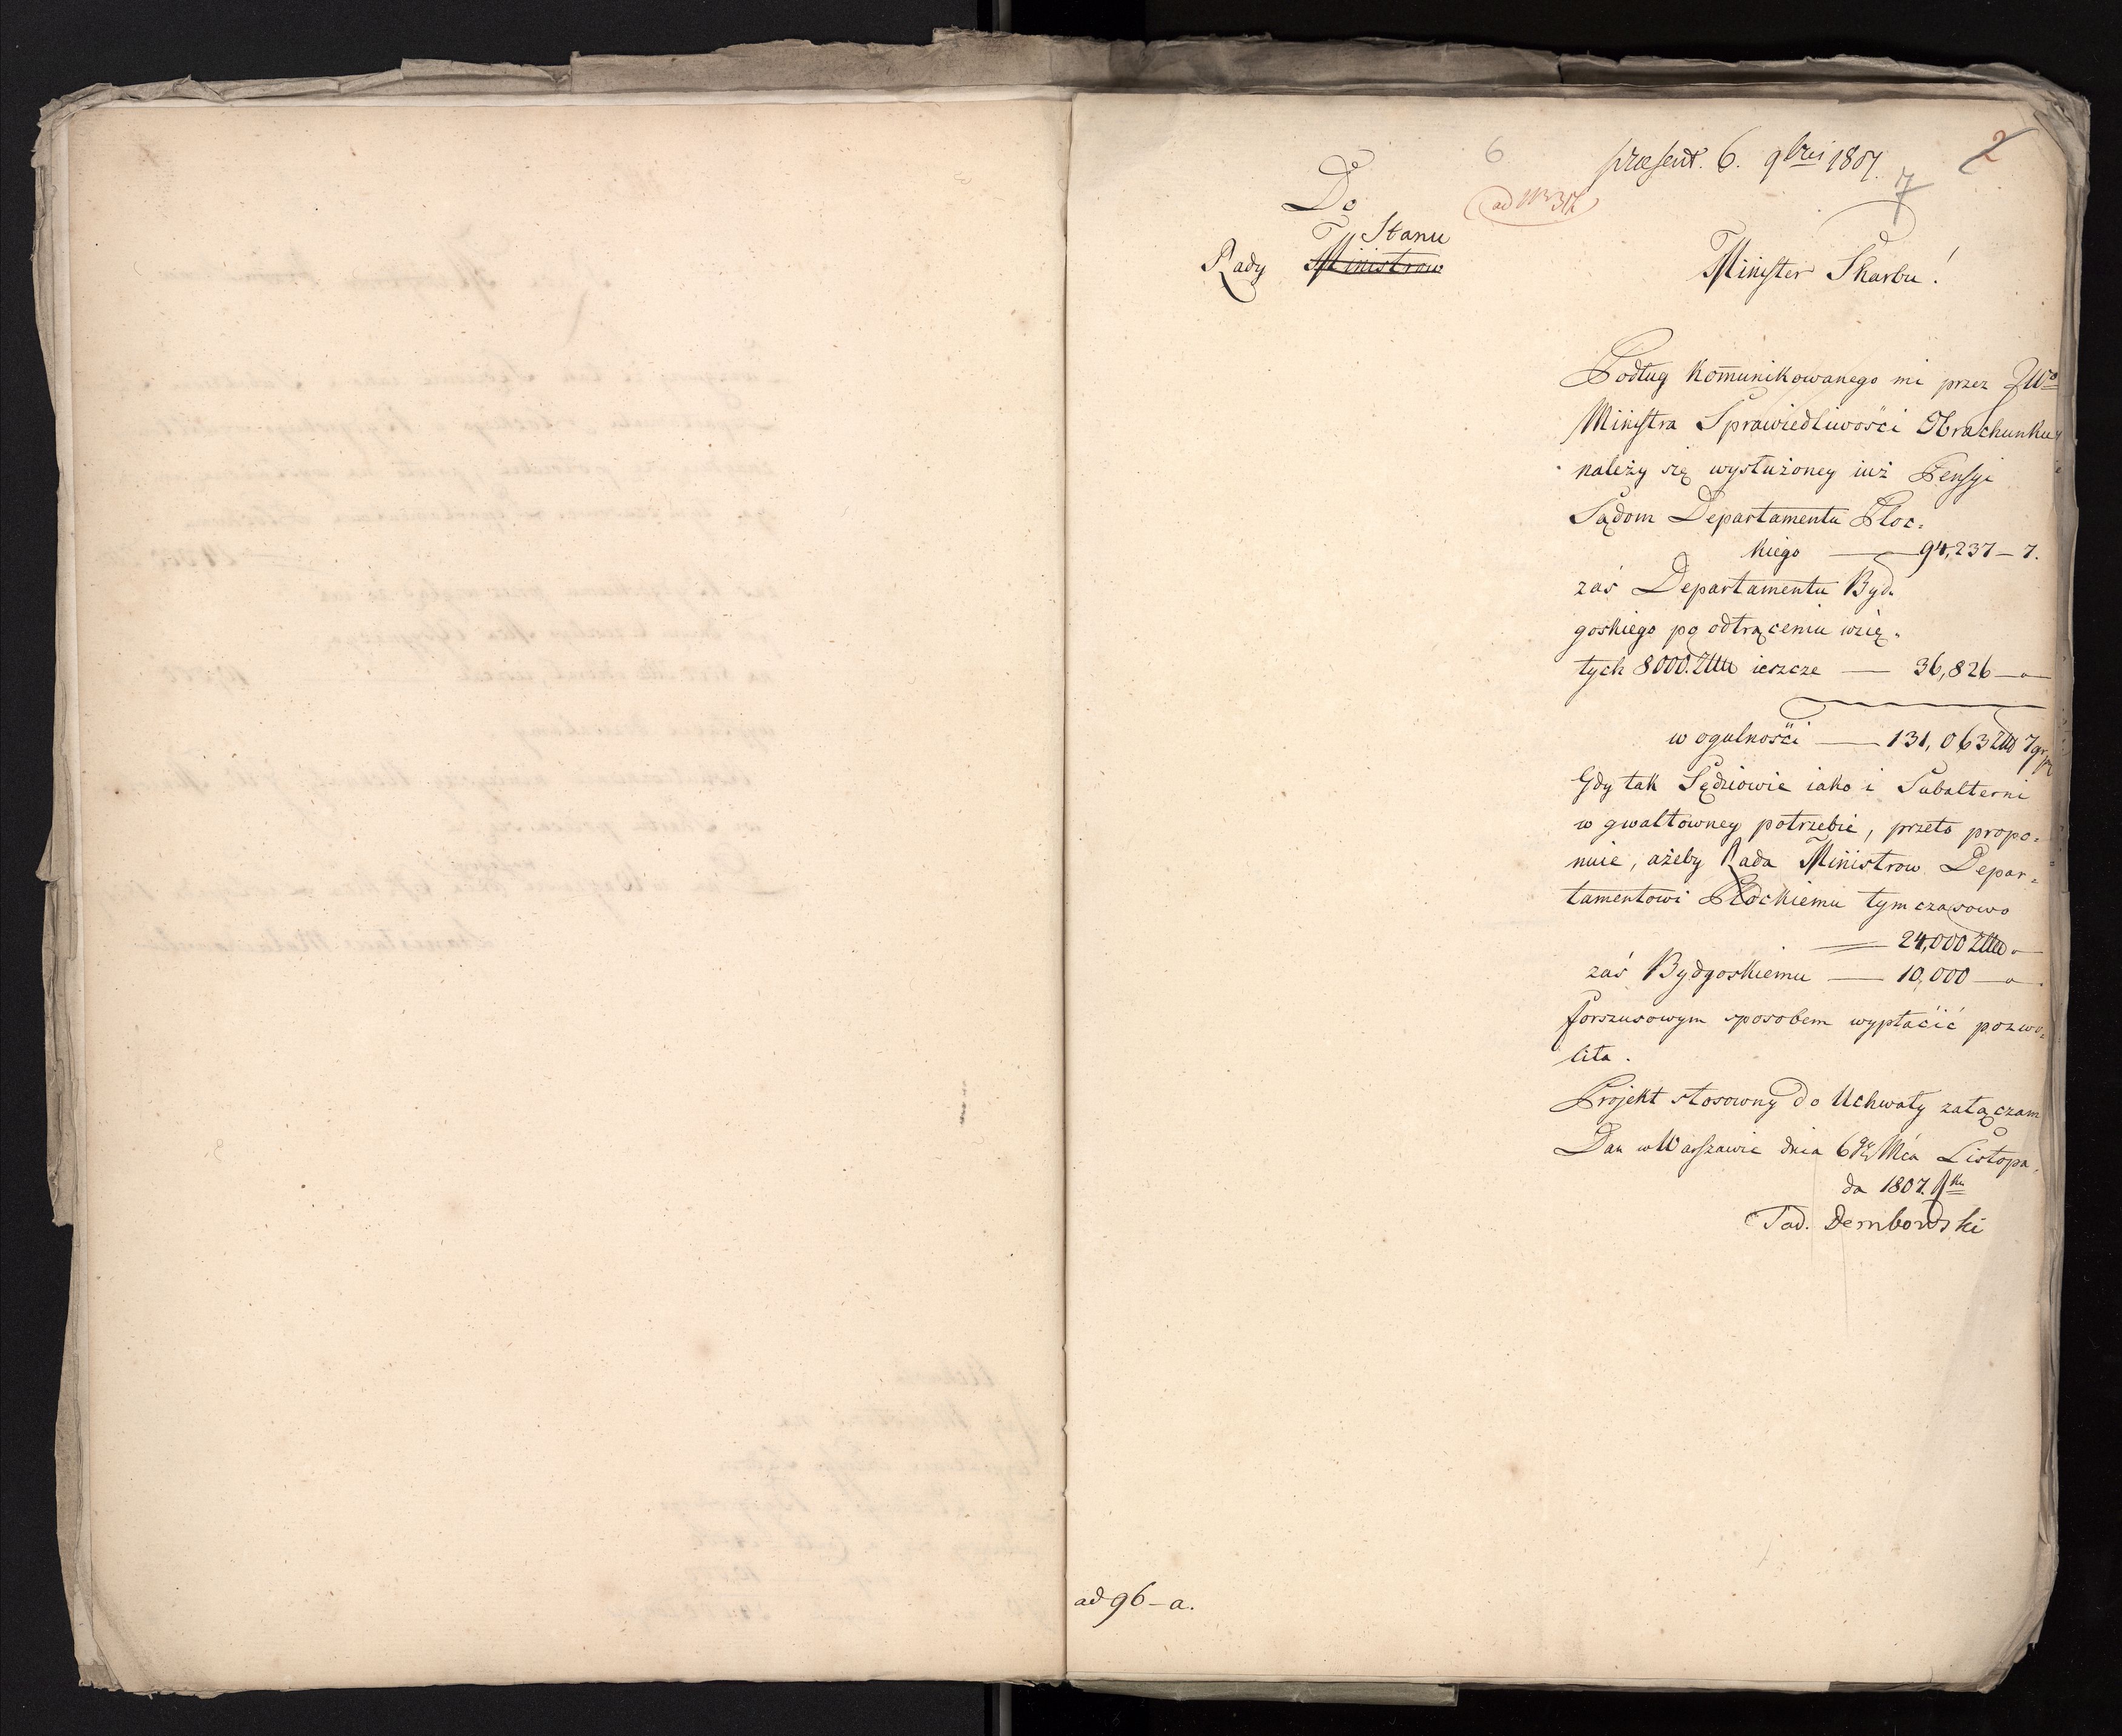 6
præsent. 6. 9bris 1807.
2
7
ad
Do
Stanu
Rady Ministrow
Minister Skarbu!
Podług kom̄unikowanego mi przez JWo
Ministra Sprawiedliwości Obrachunku
należy się wysłużoney iuż Pensyi
Sądom Departamentu Płoc=
kiego — 94,237 — 7.
zaś Departamentu Byd=
goskiego po odtrąceniu wzię=
tych 8000. Złłł ieszcze — 36,826 —
w ogulności — 131,063 Złłł 7 gr
Gdy tak Sędziowie iako i Subalterni
w gwałtowney potrzebie, przeto propo=
nuie, ażeby Rada Ministrow Depar=
tamentowi Płockiemu tymczasowo
= 24,000 Złłł —
zaś Bydgoskiemu — 10,000 —
forszusowym sposobem wypłacić pozwo=
liła.
Projekt stosowny do Uchwały załączam
Dan w Warszawie dnia 6go Mca Listopa=
da 1807. Rku
Tad. Dembowski
ad 96 - a.